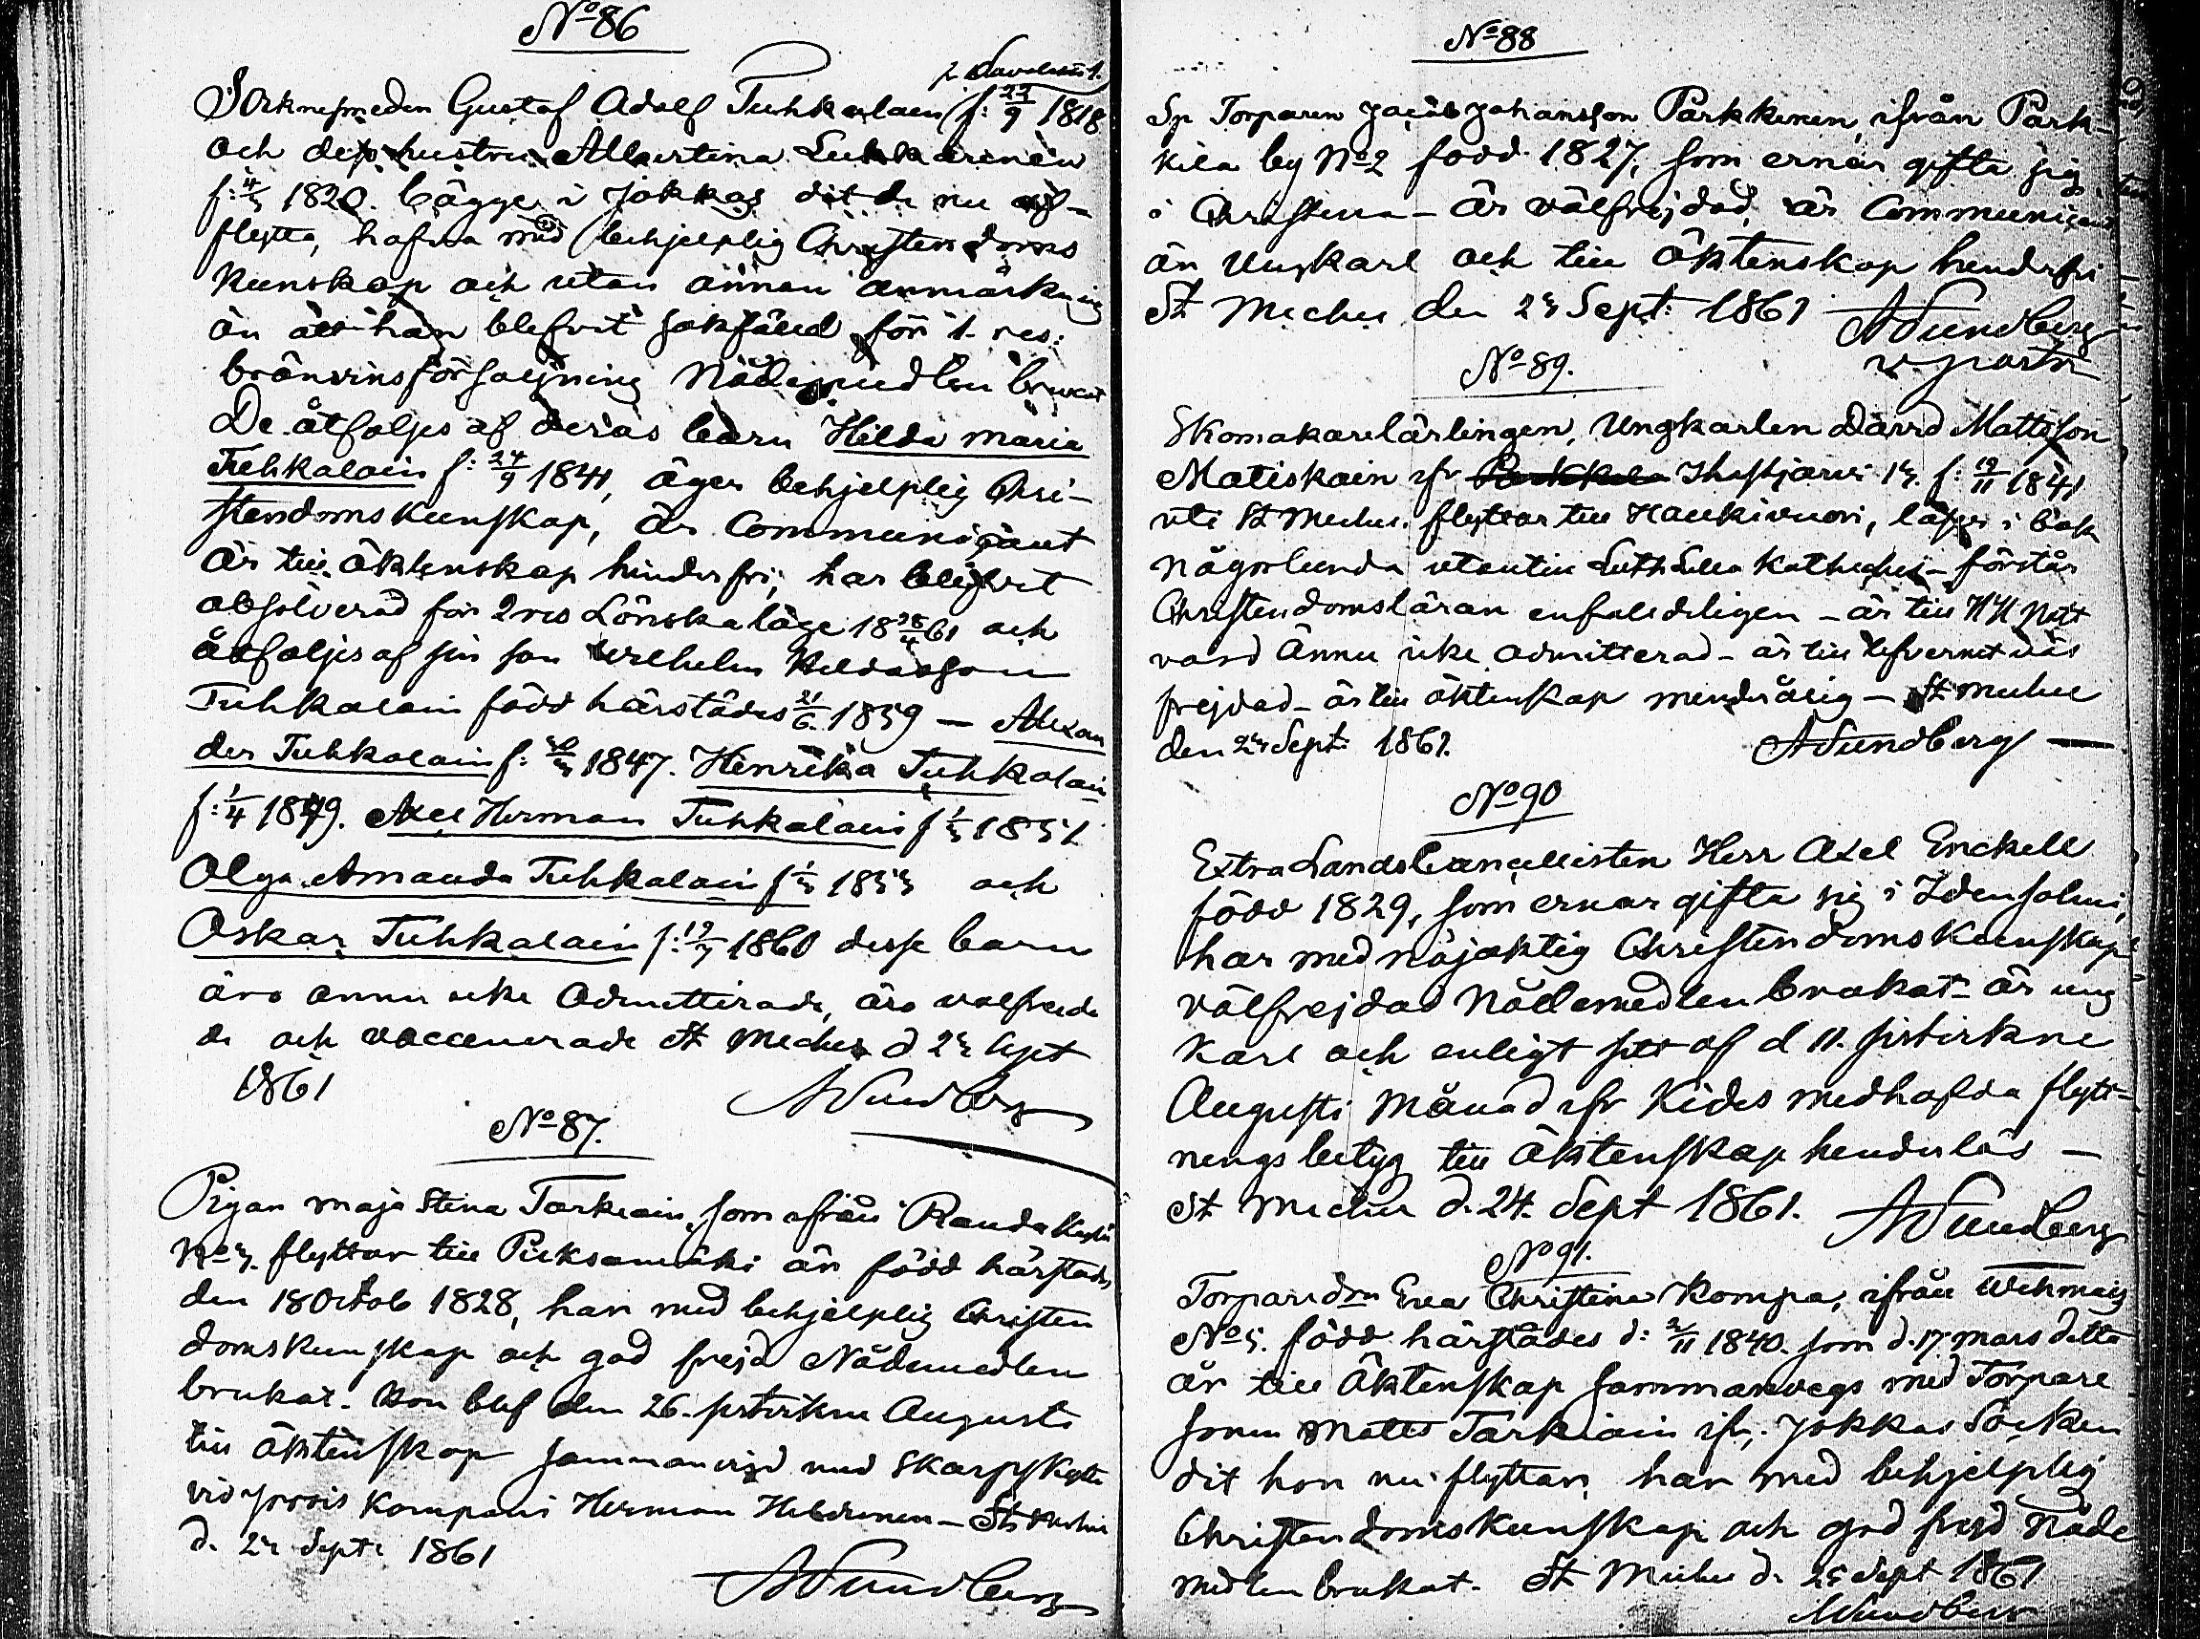 No 86
Socknesmeden Gustaf Adolf Tuhkalain f: 22/9 1818
och dess hustru Albertina Lukkarinen
f: 4/5 1820. bägge i Jokkas dit de nu af-
flytta, hafva med behjelplig Christendoms
kunskap och utan annan anmärkning
än att han blefvit sakfäld för 1. res:
bränvinsförsäljning Nådemedlen brukat
De åtföljes af deras barn Hilda Maria
Tuhkalain f: 24/9 1841, äger behjelplig Chri-
stendomskunskap, är Communicant
är till äktenskap hinderfri, har blifvit
absolverad för 2 res Lönskaläge 18 28/4 61 och
åtföljes af sin son Wilhelm Hildasson
Tuhkalain född härstädes 21/6 1859 — Alexan
der Tuhkalain f: 1847. Henrika Tuhkalain
f: 1/4 1849. Axel Herman Tuhkalain f 1/5 1851
Olga Amanda Tuhkalain f 1/5 1855 och
Oskar Tuhkalain f: 19/7 1860 desse barn
äro ännu icke Admitterade, äro välfrejda
de och vaccinerade St Michel d 25 Sept
1861
A Sundberg
No 87.
Pigan Maja Stina Tarkiain, som ifrån Randa
No 5. flyttar till Pieksamäki är född härstädes
den 18 Octob 1828, har med behjelplig Christen
domskunskap och god frejd Nådemedlen
brukat. Hon blef den 26. sistvikne Augusti
till äktenskap sammanvigd med Skarpskytte
vid Jorois Kompani Herman — St Michel
d. 25 Sept: 1861
A Sundberg
No 88
Sp Torparen Jacob Johansson Parkkinen, ifrån Park-
kila by No 2 född 1827, som ernar gifta sig
i Christina – är välfrejdad, är Communicant
än Ungkarl och till äktenskap hinderfri
St Michel den 25 Sept: 1861
A Sundberg
v. pastor
No 89.
Skomakarelärlingen, Ungkarlen David Mattsson
Matiskain ifr Parkkila Ihastjärvi 15. f: 19/11 1841
uti St Michel. flyttar till Haukivuori, läser i bok
någorlunda utantill Luth Lilla Katheches – förstår
Christendomsläran enfaldeligen – är till HH Natt
vard ännu icke admitterad – är till lefvernet väl
frejdad – är till äktenskap minderårig — St Michel
den 25 Sept: 1861.
A Sundberg
No 90
Extra Landscancellisten Herr Axel Enckell
född 1829, som ernar gifta sig i Idensalmi,
har med nöjaktig Christendomskunskap
välfrejdad Nådemedlen brukat – är ung
karl och enligt sitt af d 11. sistvikne
Augusti Månad ifr Kides medhafda flytt-
ningsbetyg till Äktenskap hinderlös —
St Michel d. 24. Sept 1861.
A Sundberg
No 91.
Torparedrn Eva Christina Kompa, ifrån Wehmais
No 5. född härstädes d: 2/11 1840. som d. 17 Mars detta
år till Äktenskap sammanvegs med Torpare
sonen Matts Tarkiain ifr, Jokkas Socken
dit hon nu flyttar, har med behjelplig
Christendomskunskap och god frejd Nåde
medlen brukat. St Michel d. 25 Sept 1861
A Sundberg